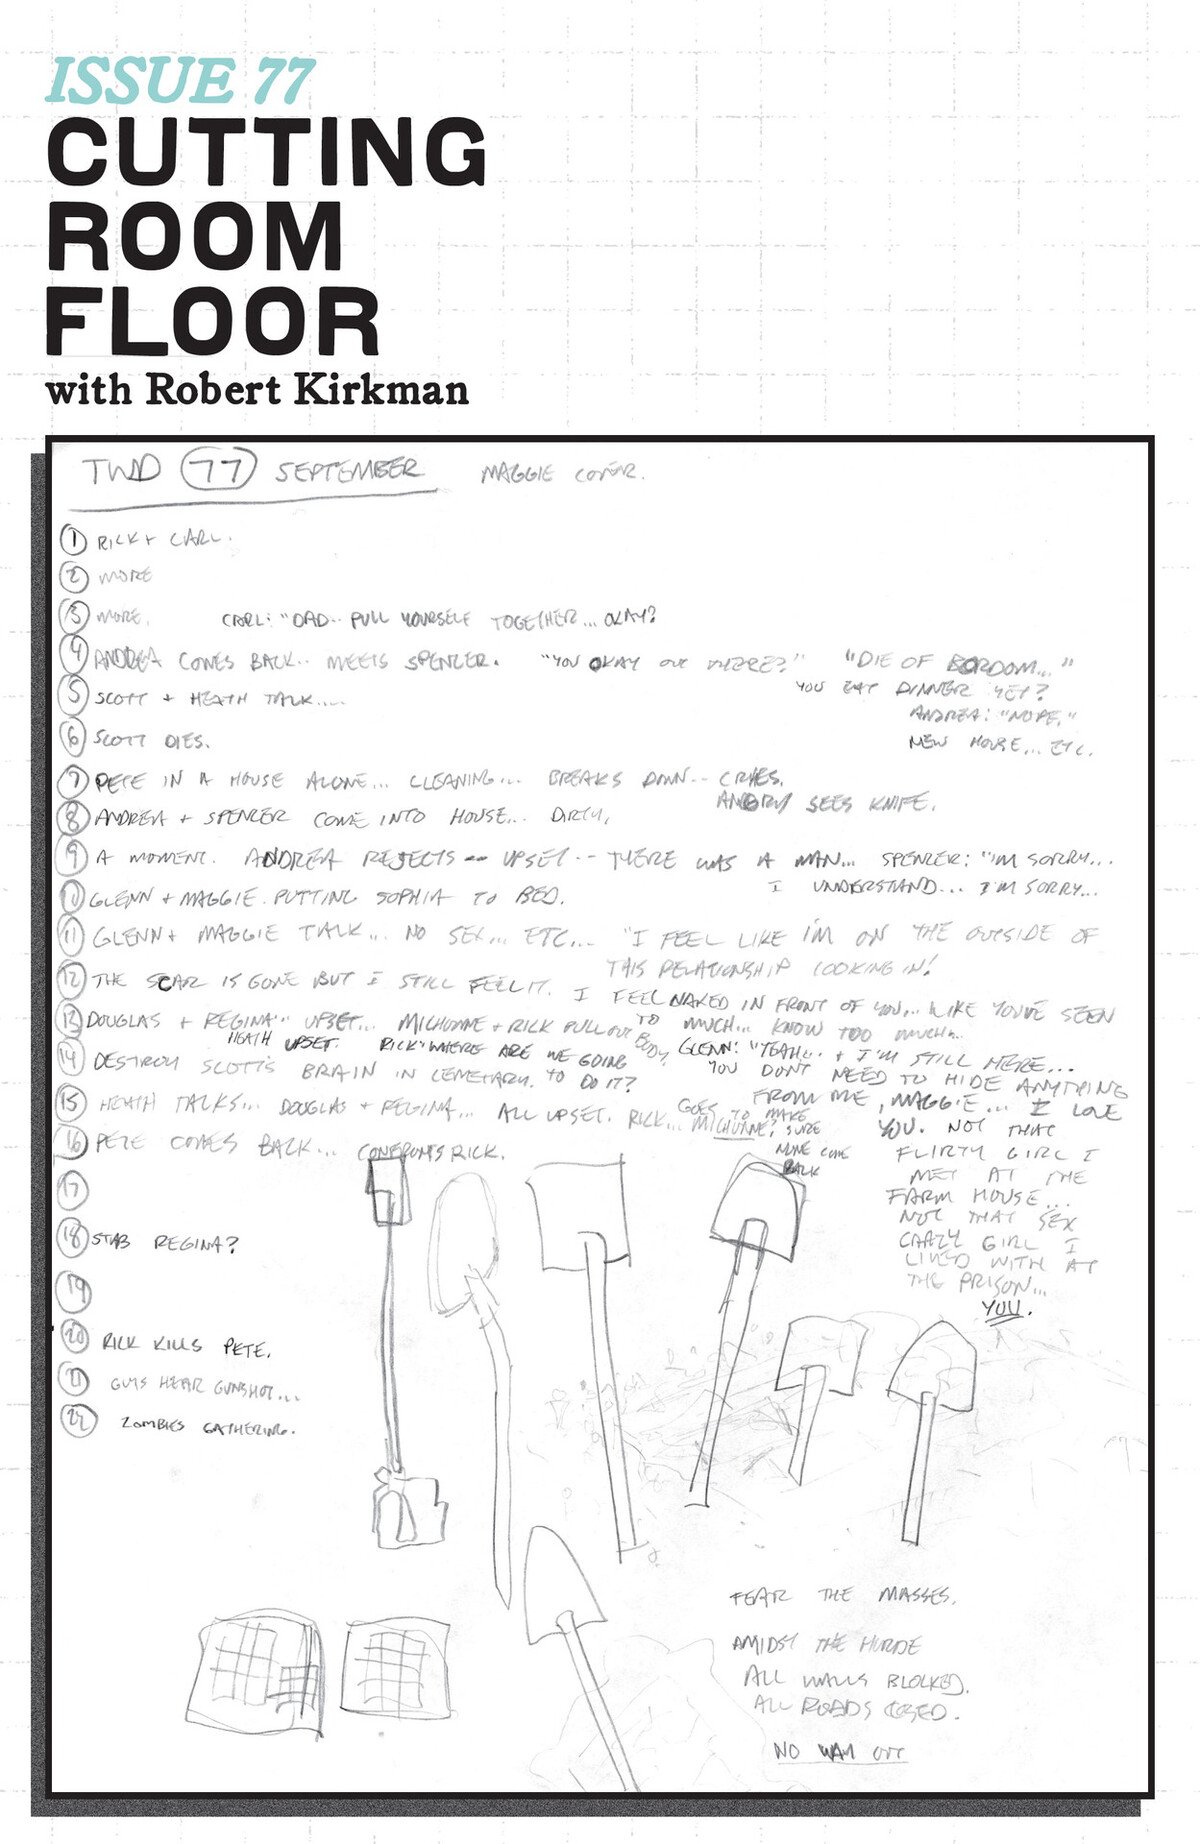 ISSUE 77
CUTTING
ROOM
FLOOR
with Robert Kirkman
TWD 77 SEPTEMBER MAGGIE COVER.
1 RICK + CARL.
2 MORE
3 MORE. CARL: "DAD.. PULL YOURSELF TOGETHER... OKAY?
4 ANDREA COMES BACK.. MEETS SPENCER. "YOU OKAY OUT THERE?" "DIE OF BORDOM..."
YOU EAT DINNER YET?
5 SCOTT + HEATH TALK....
ANDREA: "NOPE."
6 SCOTT DIES.
NEW HOUSE... ETC.
7 PETE IN A HOUSE ALONE... CLEANING... BREAKS DOWN.. CRIES.
ANGRY SEES KNIFE.
8 ANDREA + SPENCER COME INTO HOUSE... DIRTY.
9 A MOMENT. ANDREA REJECTS -- UPSET -- THERE WAS A MAN... SPENCER: "I'M SORRY...
I UNDERSTAND... I'M SORRY...
10 GLENN + MAGGIE PUTTING SOPHIA TO BED.
11 GLENN + MAGGIE TALK... NO SEX... ETC... "I FEEL LIKE I'M ON THE OUTSIDE OF
THIS RELATIONSHIP LOOKING IN!
12 THE SCAR IS GONE BUT I STILL FEEL IT. I FEEL NAKED IN FRONT OF YOU... LIKE YOU'VE SEEN
TO MUCH... KNOW TOO MUCH...
13 DOUGLAS + REGINA... UPSET... MICHONNE + RICK PULL OUT BODY.
HEATH UPSET. RICK: "WHERE ARE WE GOING
TO DO IT?
GLENN: "YEAH... + I'M STILL HERE...
14 DESTROY SCOTT'S BRAIN IN CEMETARY.
YOU DON'T NEED TO HIDE ANYTHING
FROM ME, MAGGIE... I LOVE
15 HEATH TALKS... DOUGLAS + REGINA... ALL UPSET. RICK... GOES TO MAKE
MICHONNE? SURE
NONE COME
BACK
YOU. NOT THAT
16 PETE COMES BACK... CONFRONTS RICK.
FLIRTY GIRL I
MET AT THE
FARM HOUSE...
NOT THAT SEX
CRAZY GIRL I
LIVED WITH AT
THE PRISON...
YOU.
17
18 STAB REGINA?
19
20 RICK KILLS PETE.
21 GUYS HEAR GUNSHOT...
22 ZOMBIES GATHERING.
FEAR THE MASSES.
AMIDST THE HORDE
ALL WALLS BLOCKED.
ALL ROADS CLOSED.
NO WAY OUT